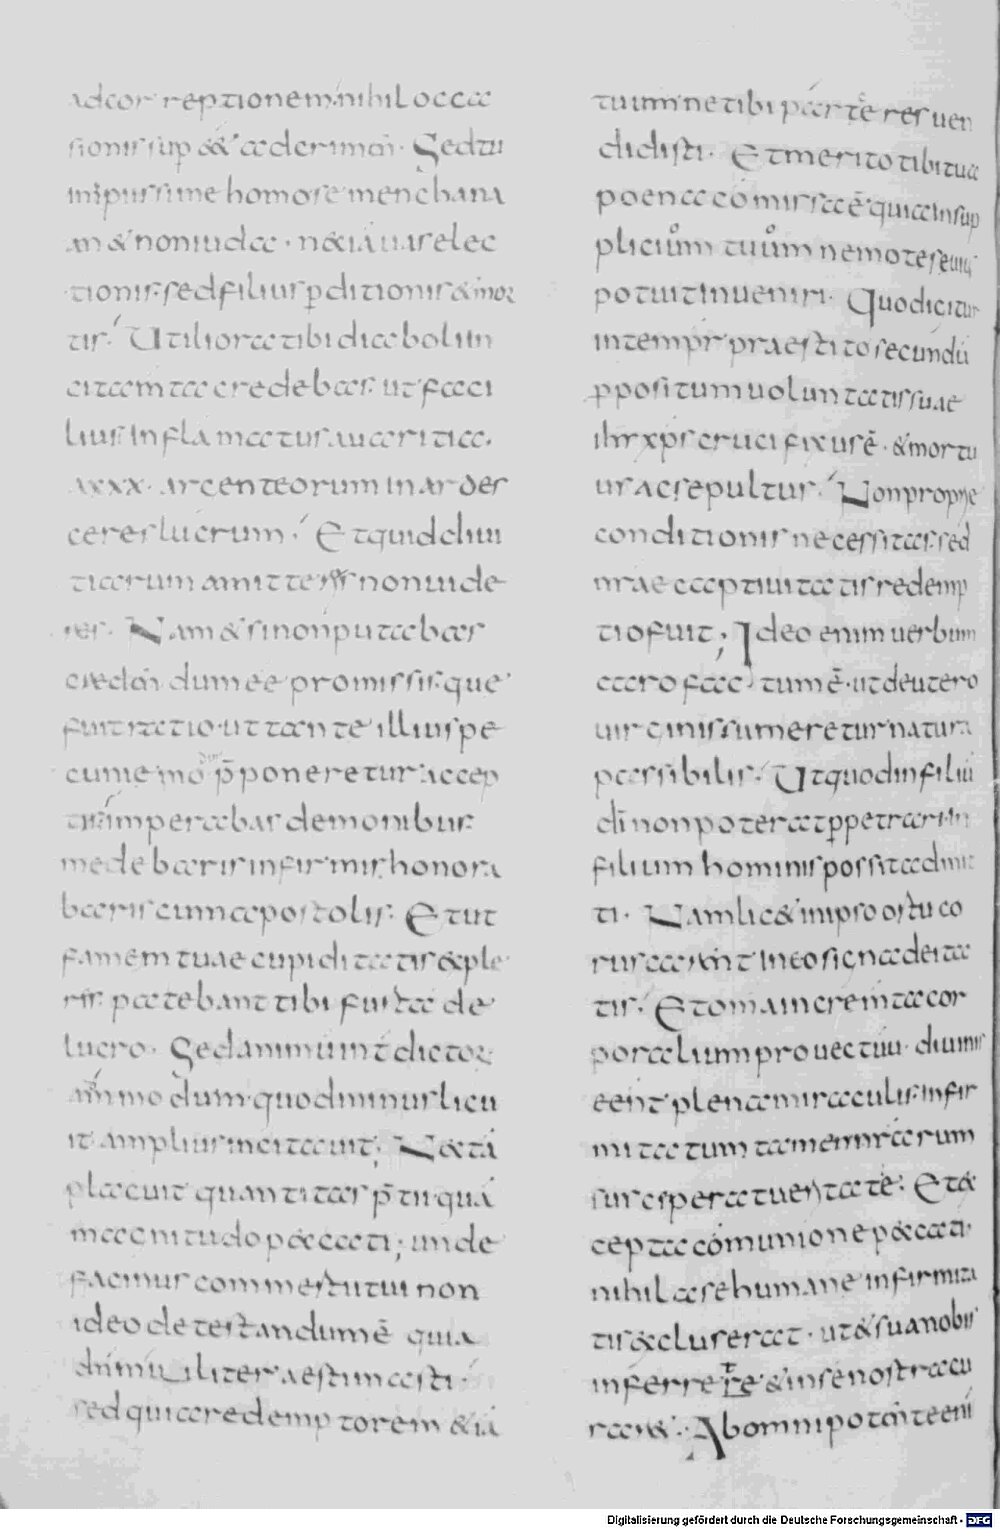 ad correptionem nihil occa
sionis sup&aelig;derim̄. Sed tu
inpiissime homo semen chana
an & non iuda. n& iā uas elec
tionis sed filius pditionis & mor
tis. Utiliora tibi diaboli in
citamta credebas. ut faci
lius inflamatus auaritia.
xxx. arcenteorum in ardes
ceres lucrum. Et quid diui
tiarum amitteres non uide
res. Nam & si non putabas
dum ee promissis. que
fuit ratio. ut tante illius pe
cunie mo p̄poneretur accep
imperabas demonibus
medebaris infirmis. honora
baris cum apostolis. Et ut
famem tuae cupiditatis exple
ris. patebant tibi furta de
lucro. Sed animū int̄ dictor
quod minus licu
it amplius incitauit; N& tā
placuit quantitas p̄tii quā
macnitudo peccati; unde
facinus commestutui non
ideo detestandum ē quia
uiliter aestimasti.
sed quia redemptorem & iā
tuum ne tibi parte res uen
didisti. Et merito tibi tua
poena comissa ē. quia in sup
plicium tuum nemo te seuiꝰ
potuit inueniri. Quo dicitur
in tempr̄ praestito secundū
ppositum uoluntatis suae
ihs xps crucifixus ē. & mortu
us ac sepultus. Non propriae
conditionis necessitas. sed
nr̄ae captiuitatis redemp
tio fuit; Ideo enim uerbum
caro factum ē. ut de utero
uircinis sumeretur natura
passibilis. Ut quod in filiū
dī non poterat ppetrari. In
filium hominis possit admit
ti. Nam lic& in ipso ostu co
rus int eo sicna deita
tis. Et omā incremta cor
poralium prouectuū. diuinis
eent plena miraculis. infir
mitatum tam nr̄arum
suscperat ueritate. Et ex
cepta comunione peccati.
nihil a se humane infirmita
tis excluserat. ut & sua nobis
inferret & in se nostra cu
rar&. Ab omnipotente eni